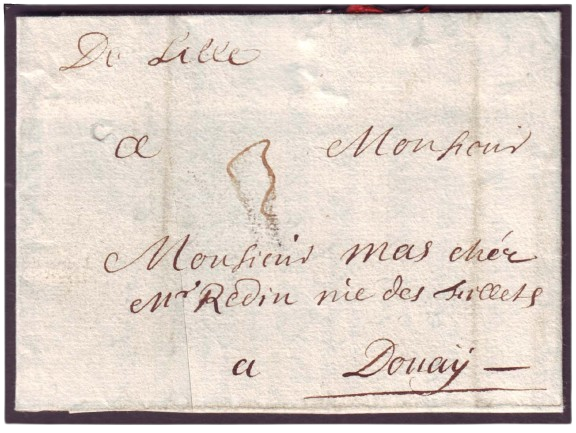 De Lille
a Monsieur
3
Monsieur mas chér
Mr Redin rüe des
a Douaÿ